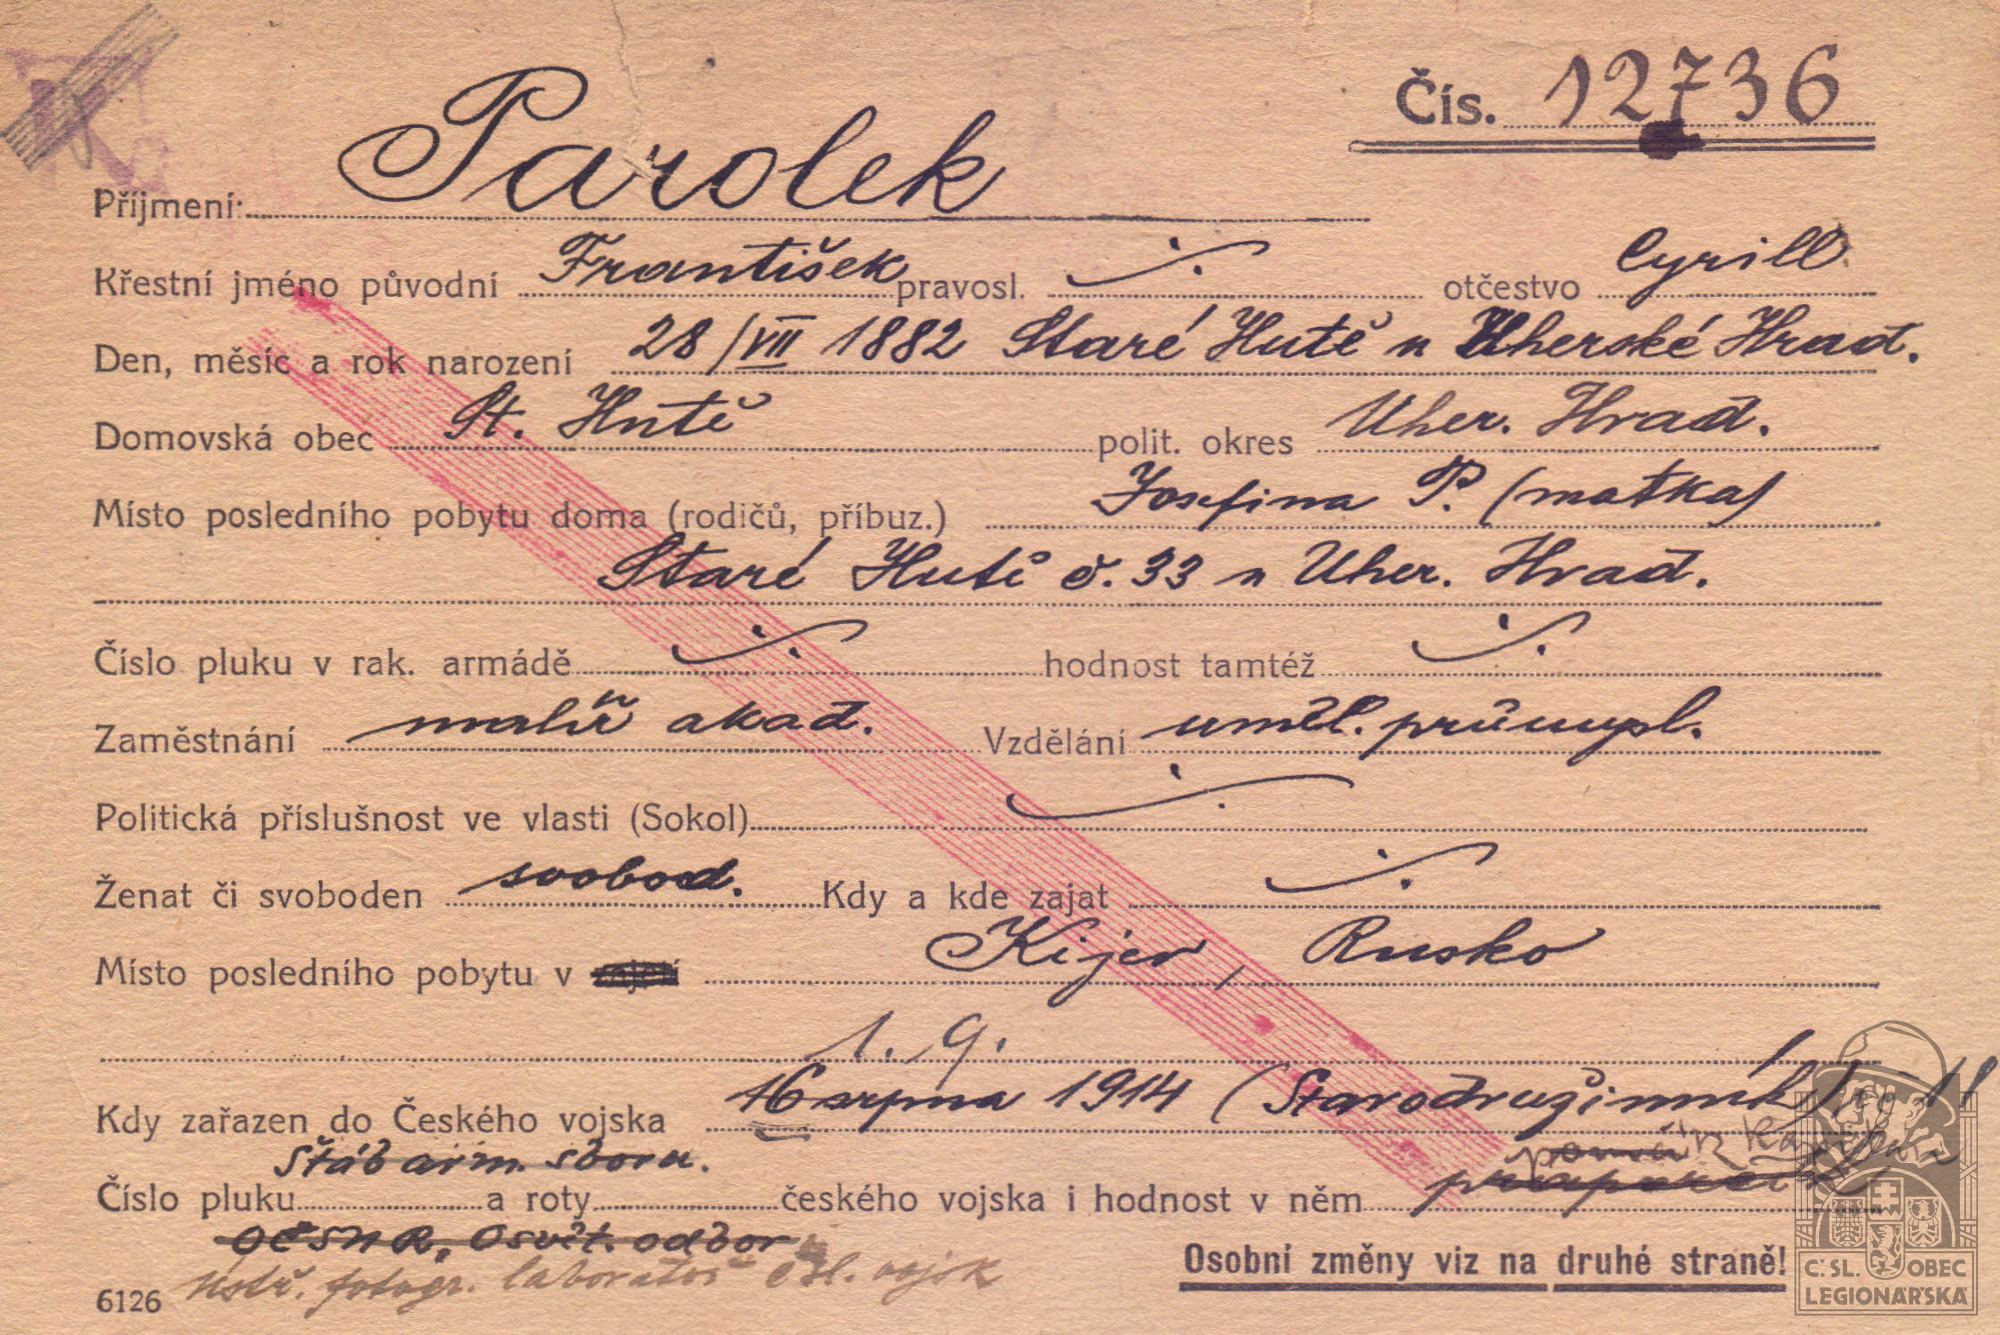 Čís. 12736
Příjmení: Parolek
Křestní jméno původní František pravosl. ./. otčestvo Cyrill.
Den, měsíc a rok narození 28/VII 1882 Staré Hutě u Uherské Hrad.
Domovská obec St. Hutě polit. okres Uher. Hrad.
Místo posledního pobytu doma (rodičů, příbuz.) Josefina P. (matka)
Staré Hutě č. 33 u Uher. Hrad.
Číslo pluku v rak. armádě ./. hodnost tamtéž ./.
Zaměstnání malíř akad. Vzdělání uměl. průmysl.
Politická příslušnost ve vlasti (Sokol) ./.
Ženat či svoboden svobod. Kdy a kde zajat ./.
Místo posledního pobytu v zajetí Kijev, Rusko
1. 9.
Kdy zařazen do Českého vojska 16 srpna 1914 (Starodružiník)
Štáb arm. sboru.
Číslo pluku a roty českého vojska i hodnost v něm praporčík
OČSNR, Osvět. odbor
Ústř. fotogr. laboratoř čsl. vojsk
Osobní změny viz na druhé straně!
6126
Č. SL. OBEC
LEGIONÁŘSKÁ